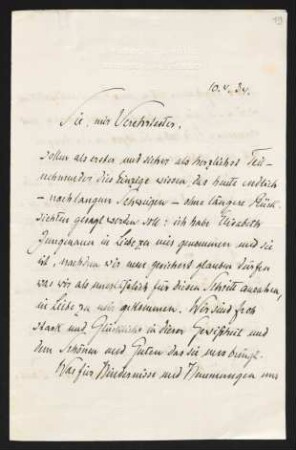 19
10.V.34.
Sie, mir Verehrtester,
sollen als erster und sicher als herzlichst Teil-
nehmender dies Einzige wissen, das heute endlich
– nach langem Schweigen – ohne längere Rück-
sichten gesagt werden soll: ich habe Elisabeth
Jungmann in Liebe zu mir genommen und sie
ist, nachdem wir nun gesichert glauben dürfen
was wir als unerlässlich für diesen Schritt ansahen,
in Liebe zu mir gekommen. Wir sind froh
stark und glücklich in dieser Gewißheit und
dem Schönen und Guten das sie uns bringt.
Was für Hindernisse und Hemmungen uns